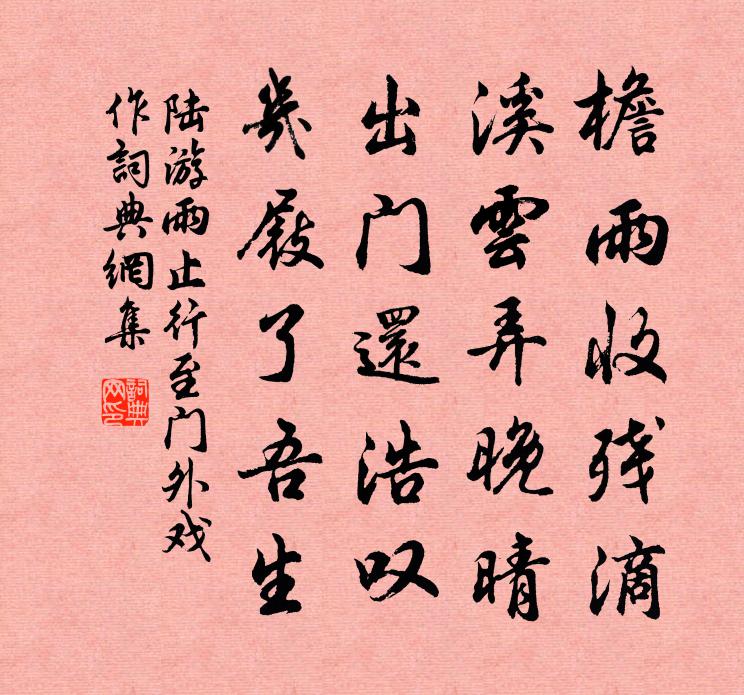 檐雨收残滴
溪雲弄晚晴
出门還浩叹
幾屐了吾生
陆游雨止行至门外戏
作詞典網集
詞典
网印